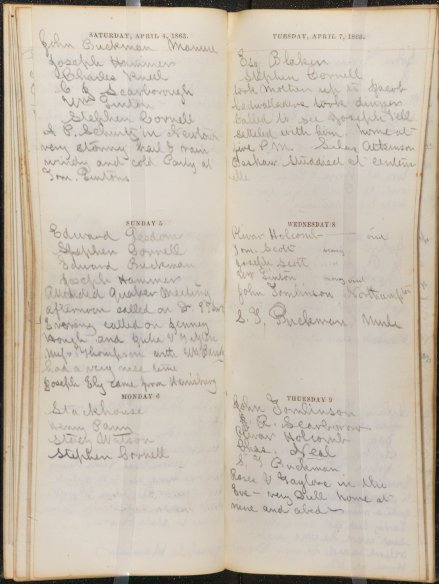 SATURDAY, APRIL 4, 1863.
John Buckman Manure
Joseph Hammer
Charles Kneel
C S Scarborough
Wm Linton
Stephen Cornell
A P. Schurtz in Newtown
very stormy hail & rain
windy and cold Party at
Tom. Lintons
SUNDAY 5
Edward
Stephen Cornell
Edward Buckman
Joseph Hammer
Attended Quaker Meeting
afternoon called on
Evening called on Jenney
Hough and Julia
Miss Thompson with
had a very nice time
Joseph Ely came from Harrisburg
MONDAY 6
Stackhouse
Henny
Stacy Watson
Stephen Cornell
TUESDAY, APRIL 7, 1863.
Esq Blaker
Stephen Cornell
took Mottan up to Jacob
took dinner
called to see Joseph Fell
settled with him. home at
five P.M. Atkinson
at Center
ville
WEDNESDAY 8
Oliver Holcomb
Tom. Scott
Joseph Scott
Wm Linton
John Tomlinson Northampton
S. G, Buckman Mule
THURSDAY 9
John Tomlinson
Scarborow
Oliver Holcomb
Chas. Neal
S G Buckman
in the
Eve - very Dull home at
nine and abed